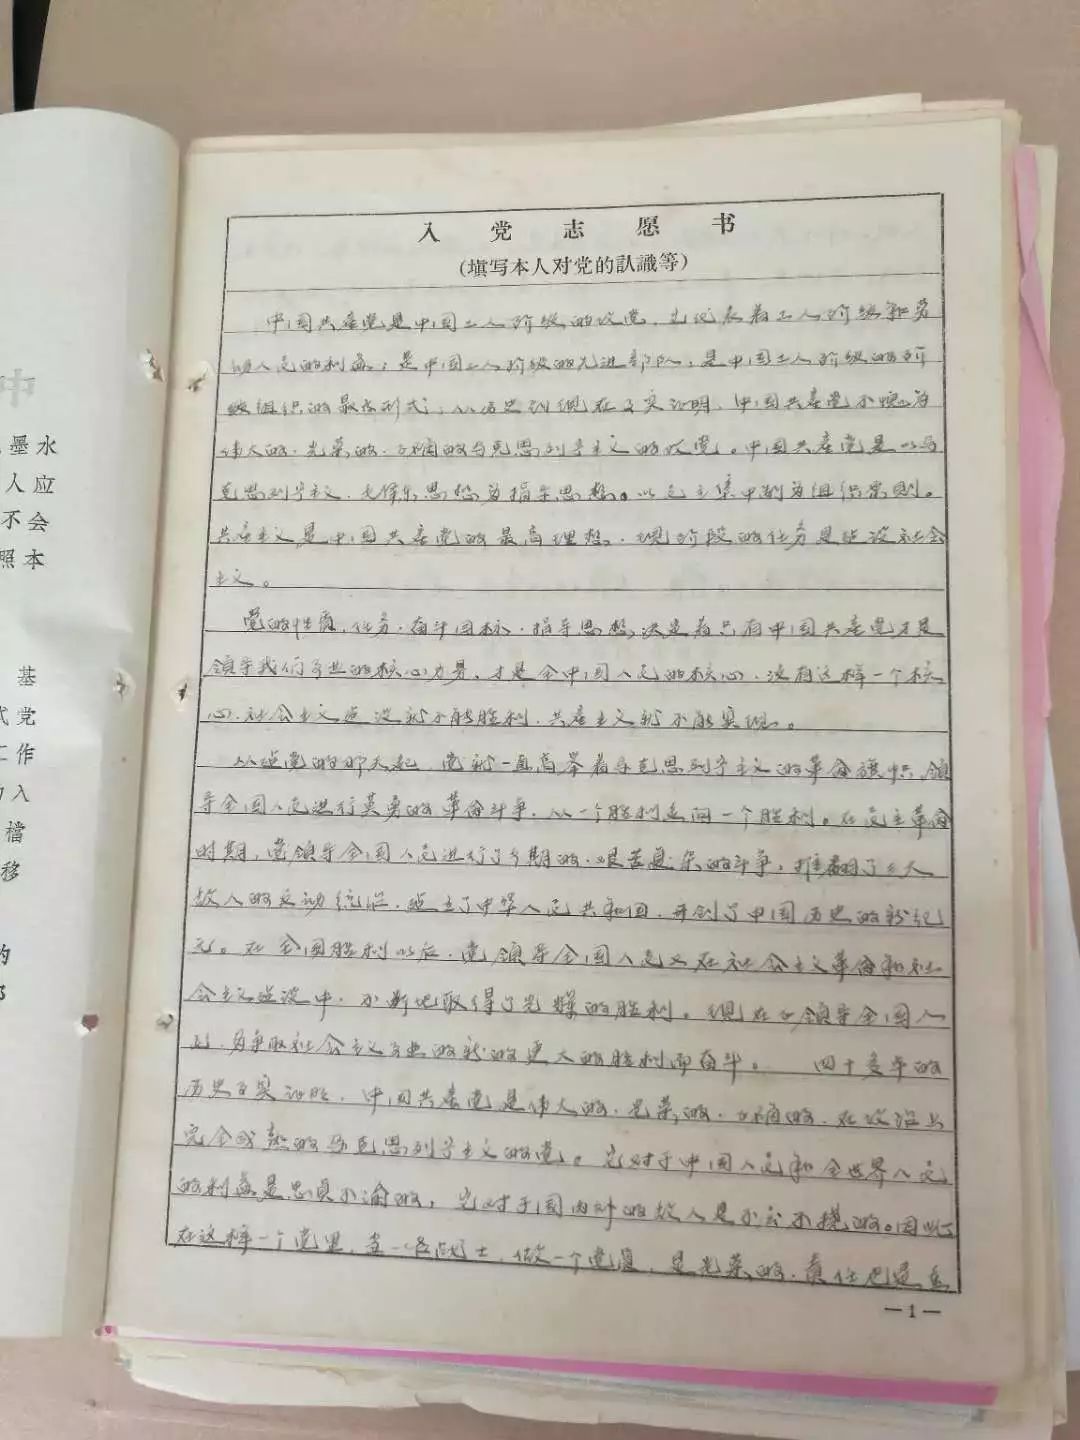 中
墨水
人应
不会
照本
基
式党
工作
入
檔
移
的
入党志愿书
(填写本人对党的認識等)
中国共产党是中国工人阶级的政党，它代表着工人阶级和劳
动人民的利益；是中国工人阶级的先进部队，是中国工人阶级的阶
级组织的最高形式；从历史到现在了实证明，中国共产党不愧为
伟大的、光荣的、正确的马克思列宁主义的政党。中国共产党是以马
克思列宁主义、毛泽东思想为指导思想。以民主集中制为组织原则。
共产主义是中国共产党的最高理想，现阶段的任务是建设社会
主义。
党的性质、任务、奋斗目标、指导思想决定着只有中国共产党才是
领导我们事业的核心力量，才是全中国人民的核心，没有这样一个核
心，社会主义建设就不能胜利，共产主义就不能实现。
从建党的那天起，党就一直高举着马克思列宁主义的革命旗帜，领
导全国人民进行英勇的革命斗争，从一个胜利走向一个胜利。在民主革命
时期，党领导全国人民进行了长期的、艰苦复杂的斗争，推翻了三大
敌人的反动统治，建立了中华人民共和国，开创了中国历史的新纪
元。在全国胜利以后，党领导全国人民又在社会主义革命和社
会主义建设中，不断地取得了光辉的胜利。现在正领导全国人
民，为争取社会主义事业的新的更大的胜利而奋斗。 四十多年的
历史事实证明，中国共产党是伟大的、光荣的、正确的、在政治上
完全成熟的马克思列宁主义的党。它对于中国人民和全世界人民
的利益是忠贞不渝的，它对于国内外的敌人是不屈不挠的。因此
在这样一个党里，当一名战士，做一个党员，是光荣的，责任也是
—1—